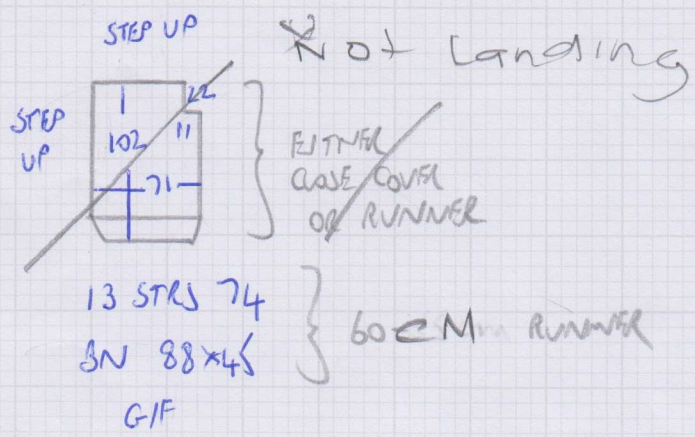 STEP UP
Not Landing
STEP
UP
1
22
102
11
71
EITHER
CLOSE COVER
OR RUNNER
13 STRS 74
BN 88x45
G/F
60CM RUNNER